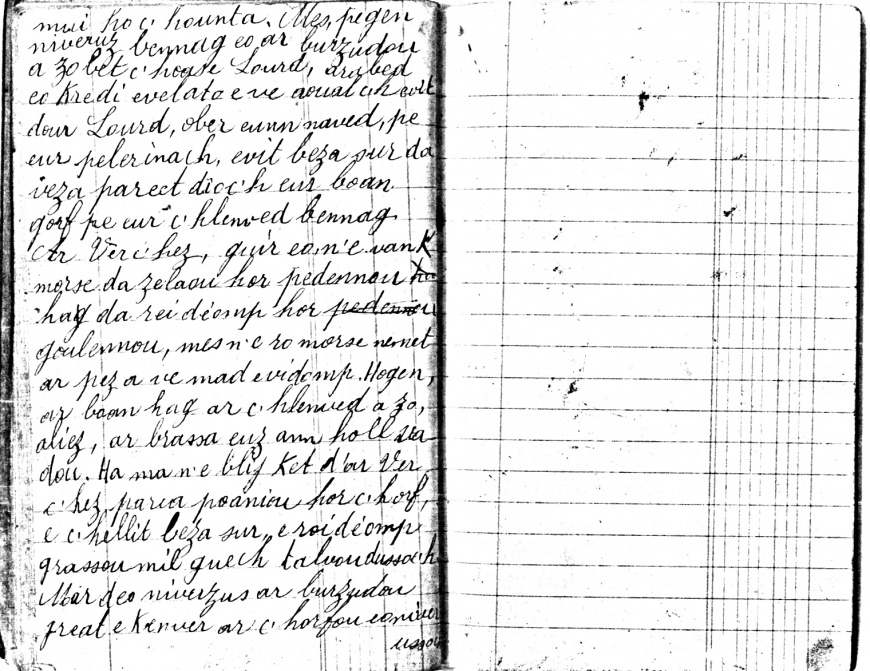 mui ho c'hounta. Mes, pegen
niveruz bennag eo ar burzudou
a zo bet c'hoase Lourd, arabed
eo Kredi evelato e ve aoualch evit
dour Lourd, ober eunn naved, pe
eur pelerinach, evit beza sur da
veza pareet dioc'h eur boan
gorf pe eur c'hlenved bennag
Ar Verc'hez, guir eo, n'e vank
morse da zelaou hor pedennou
hag da rei déomp hor pedennou
goulennou, mes n'e ro morse nemet
ar pez a ve mad evidomp. Hogen,
ar boan hag ar c'hlenved a zo,
aliez, ar brassa euz ann holl va
dou. Ha ma n'e blij Ket d'ar Ver
c'hez, parea poaniou hor c'horf,
e c'hellit beza sur, e roi déomp
grassou mil guech talvoudussoc'h
Mar deo niverzus ar burzudou
great e Kenver ar c'horfou eo niver
ussoc'h